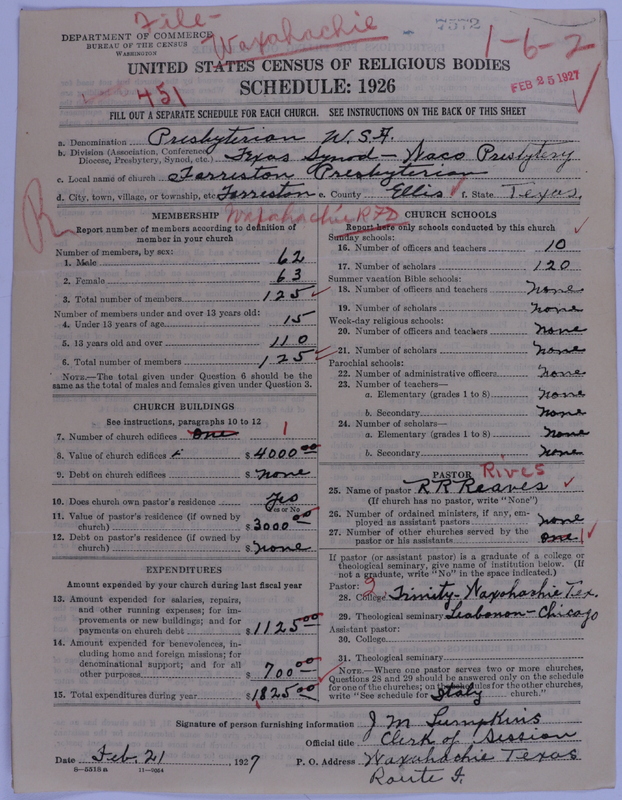 File-
Waxahachie
7572
1-6-2
DEPARTMENT OF COMMERCE
BUREAU OF THE CENSUS
WASHINGTON
UNITED STATES CENSUS OF RELIGIOUS BODIES
SCHEDULE: 1926
FEB 25 1927
451
FILL OUT A SEPARATE SCHEDULE FOR EACH CHURCH. SEE INSTRUCTIONS ON THE BACK OF THIS SHEET
a. Denomination Presbyterian U.S.A.
b. Division (Association, Conference, Diocese, Presbytery, Synod, etc.) Texas Synod - Waco Presbytery
c. Local name of church Forreston Presbyterian
d. City, town, village, or township, etc. Forreston e. County Ellis f. State Texas.
Waxahachie RFD
R
MEMBERSHIP
Report number of members according to definition of
member in your church
Number of members, by sex:
1. Male 62
2. Female 63
3. Total number of members 125
Number of members under and over 13 years old:
4. Under 13 years of age 15
5. 13 years old and over 110
6. Total number of members 125
NOTE.—The total given under Question 6 should be the
same as the total of males and females given under Question 3.
CHURCH BUILDINGS
See instructions, paragraphs 10 to 12
7. Number of church edifices One 1
8. Value of church edifices $ 4000.00
9. Debt on church edifices $ None
10. Does church own pastor's residence Yes
Yes or No
11. Value of pastor's residence (if owned by
church) $ 3000.00
12. Debt on pastor's residence (if owned by
church) $ None
EXPENDITURES
Amount expended by your church during last fiscal year
13. Amount expended for salaries, repairs,
and other running expenses; for im-
provements or new buildings; and for
payments on church debt $ 1125.00
14. Amount expended for benevolences, in-
cluding home and foreign missions; for
denominational support; and for all
other purposes $ 700.00
15. Total expenditures during year $ 1825.00
CHURCH SCHOOLS
Report here only schools conducted by this church
Sunday schools:
16. Number of officers and teachers 10
17. Number of scholars 120
Summer vacation Bible schools:
18. Number of officers and teachers None
19. Number of scholars None
Week-day religious schools:
20. Number of officers and teachers None
21. Number of scholars None
Parochial schools:
22. Number of administrative officers None
23. Number of teachers—
a. Elementary (grades 1 to 8) None
b. Secondary None
24. Number of scholars—
a. Elementary (grades 1 to 8) None
b. Secondary None
PASTOR
Rives
25. Name of pastor R R Reaves
(If church has no pastor, write "None")
26. Number of ordained ministers, if any, em-
ployed as assistant pastors None
27. Number of other churches served by the
pastor or his assistants One 1
If pastor (or assistant pastor) is a graduate of a college or
theological seminary, give name of institution below. (If
not a graduate, write "No" in the space indicated.)
Pastor: 2
28. College Trinity-Waxahachie Tex.
29. Theological seminary Leabonon-Chicago
Assistant pastor:
30. College
31. Theological seminary
NOTE.—Where one pastor serves two or more churches,
Questions 28 and 29 should be answered only on the schedule
for one of the churches; on the schedules for the other churches,
write "See schedule for Italy church."
Signature of person furnishing information J M Lumpkins
Official title Clerk of Session
Date Feb. 21, 1927 P. O. Address Waxahachie Texas
Route
8—5518a 11—9054